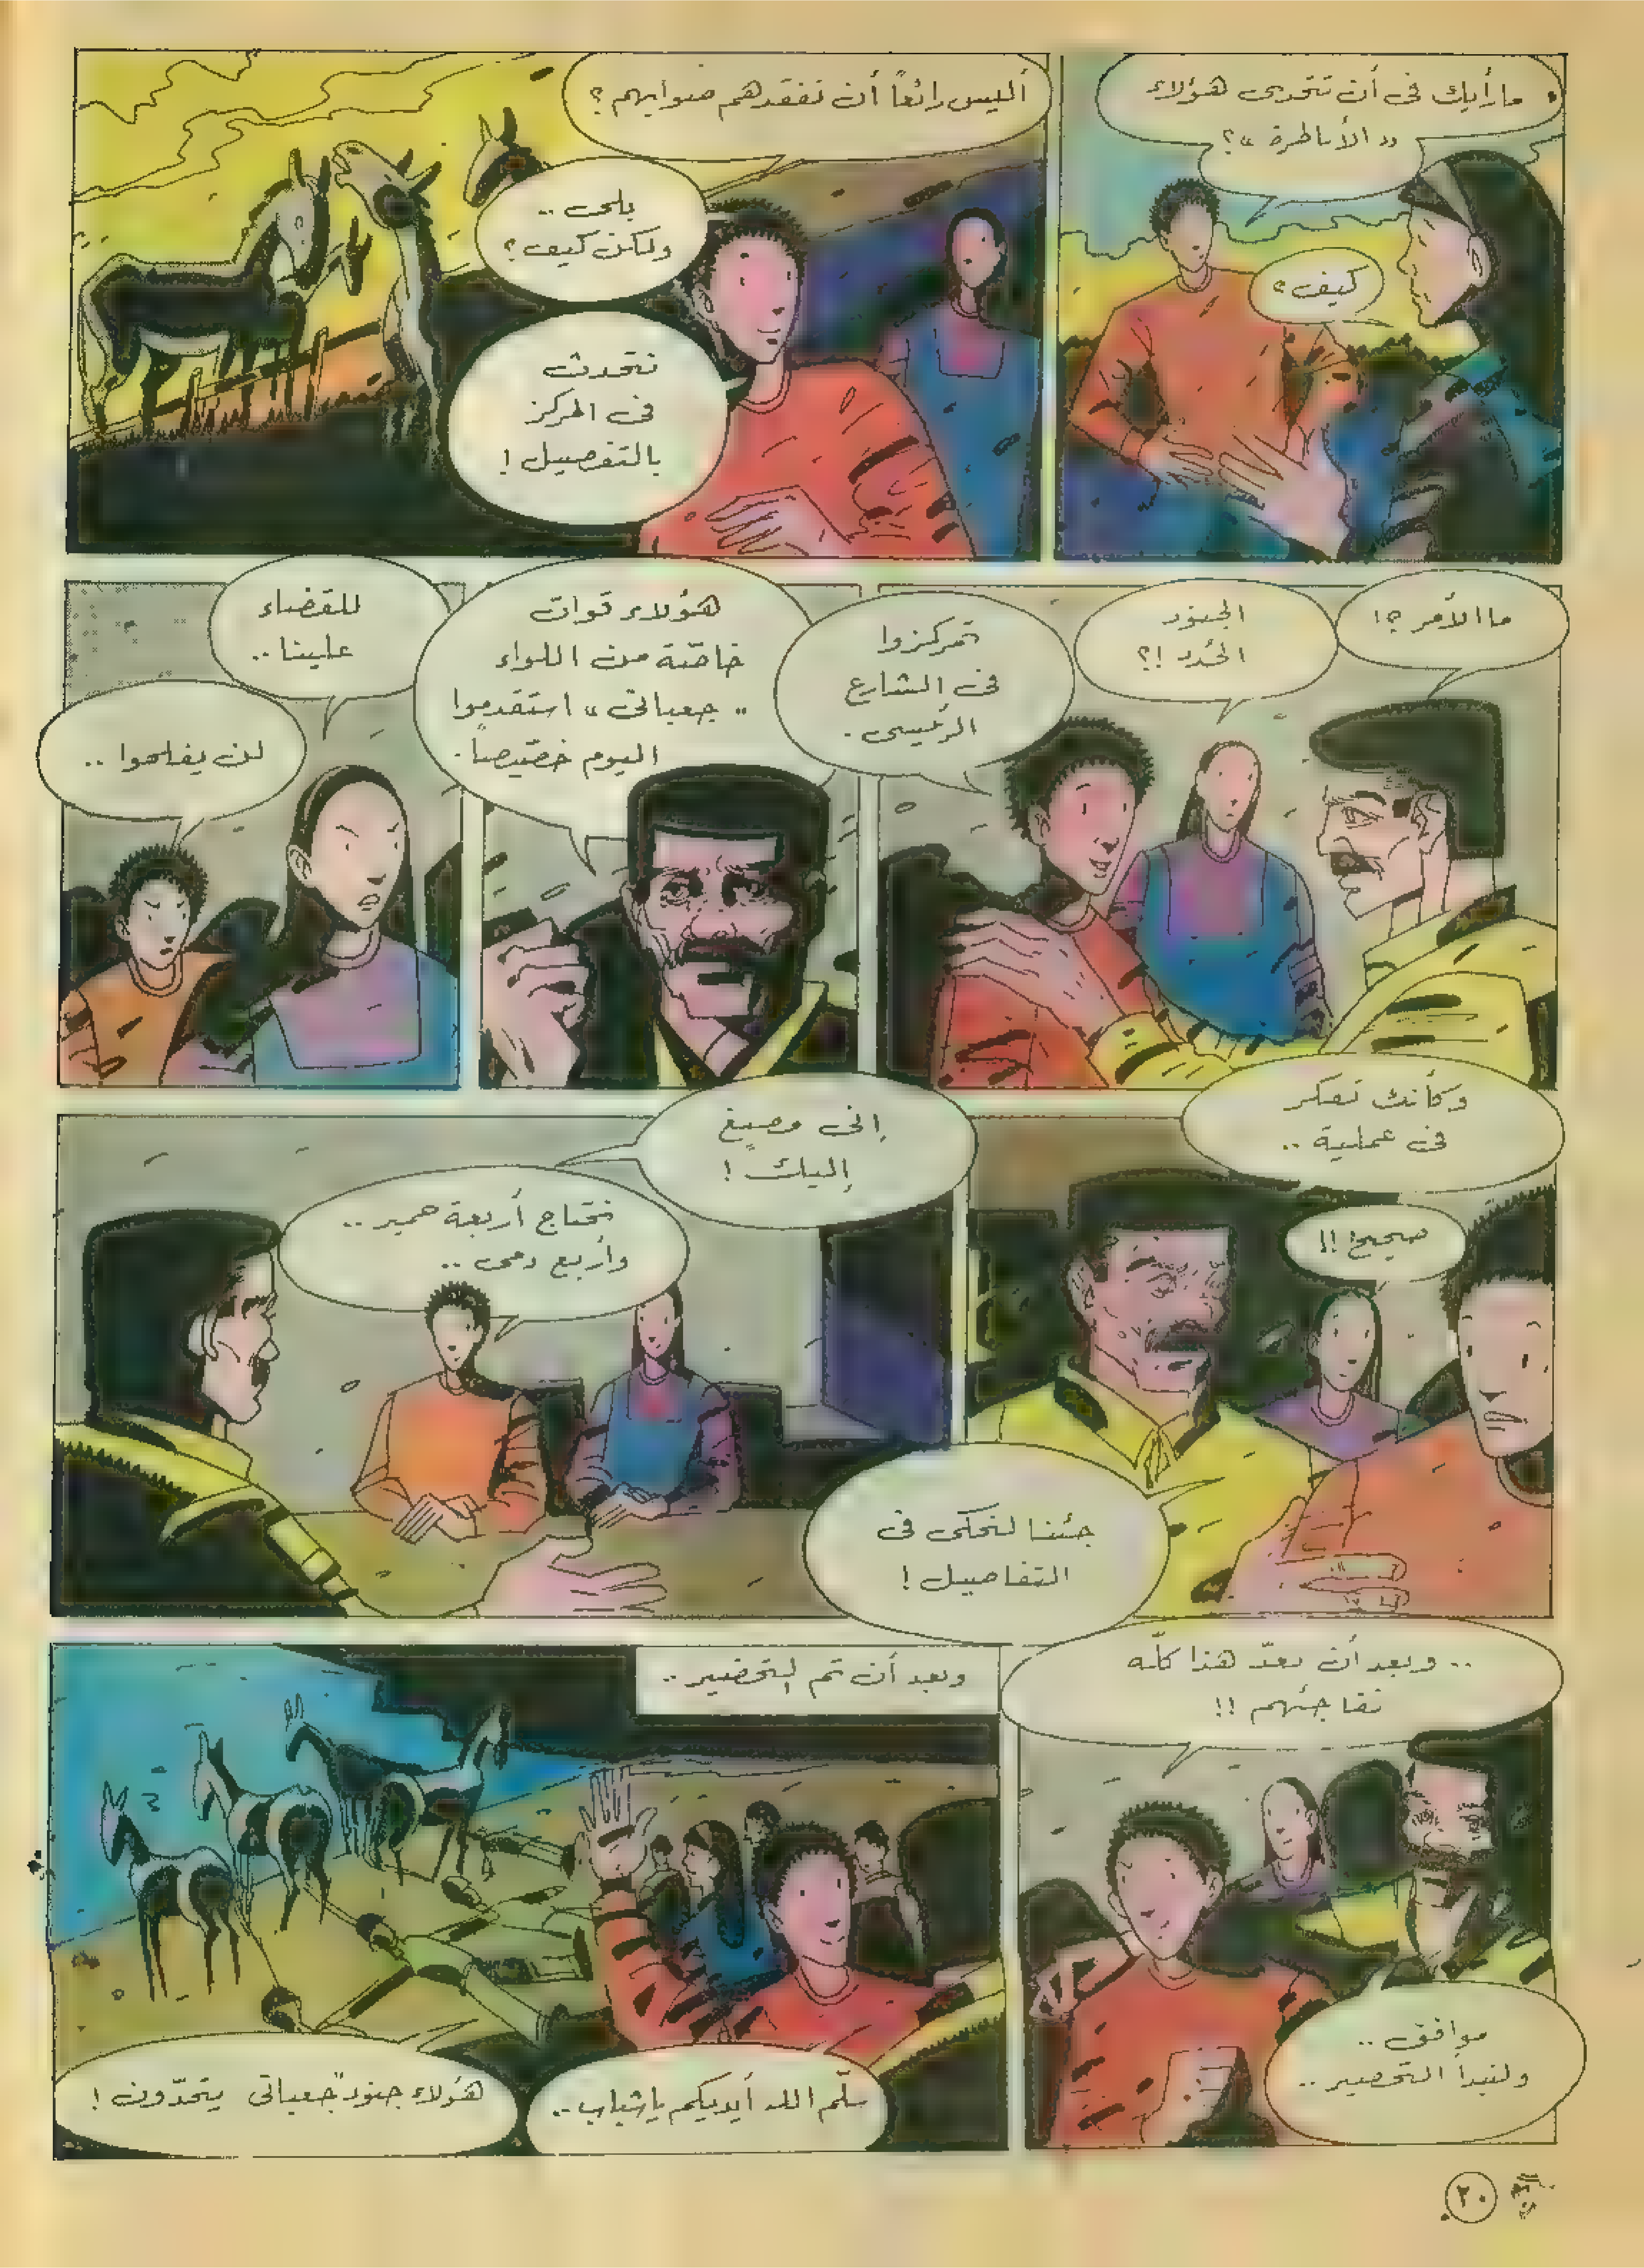 ما رأيك في أن نتحدى هؤلاء
« الأباطرة »؟
كيف؟
أليس رائعاً أن نفقدهم صوابهم؟
بلى ..
ولكن كيف؟
نتحدث
في المركز
بالتفصيل!
ما الأمر؟!
الجنود
الجُدد!؟
تمركزوا
في الشارع
الرئيسي.
هؤلاء قوات
خاصّة من اللواء
« جعباتي » استقدموا
اليوم خصّيصاً.
للقضاء
علينا..
لن يفلحوا ..
وكأنك تفكر
في عملية ..
صحيح!!
جئنا لنحكي في
التفاصيل!
إني مصغٍ
إليك!
نحتاج أربعة حمير..
وأربع دمى ..
.. وبعد أن نعدّ هذا كلّه
نفاجئهم!!
موافق ..
ولنبدأ التحضير..
وبعد أن تم التحضير..
سلّم الله أيديكم يا شباب..
هؤلاء جنود "جعباتي" يتحدّون!
٢٠